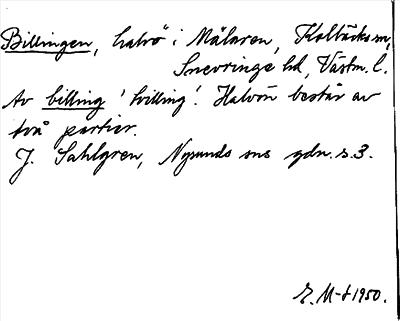 Billingen, halvö i Mälaren, Kolbäcks sn,
Snevringe hd, Västm. l.
Av billing 'tvilling'. Halvön består av
två partier.
J. Sahlgren, Nysunds sns gdn. s. 3.
E. M-d 1950.